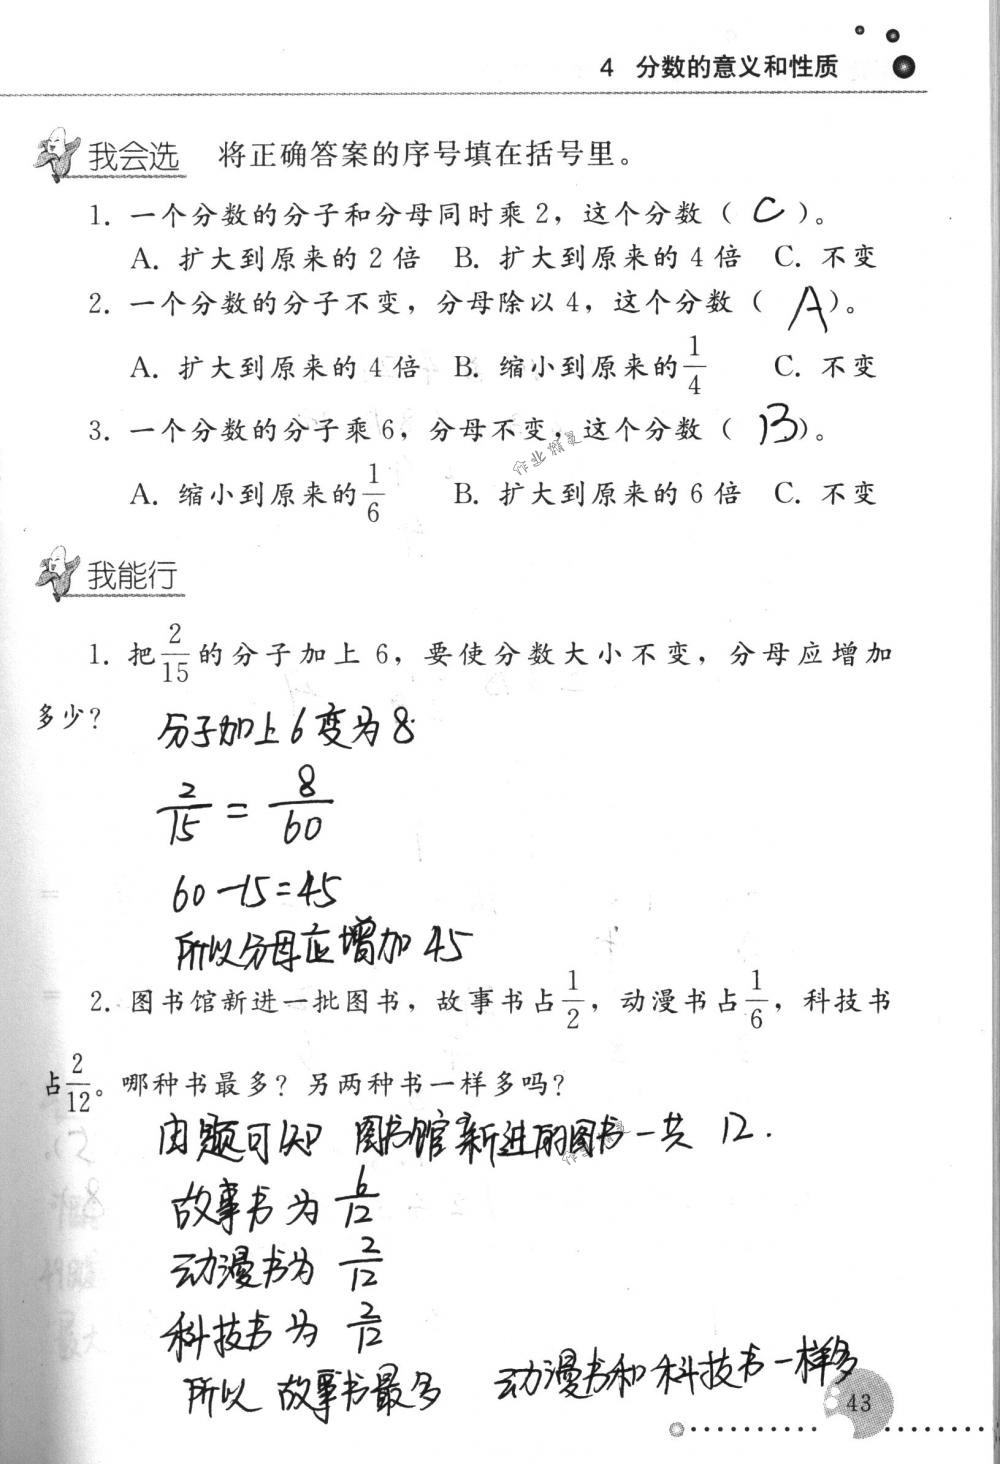 4 分数的意义和性质
我会选 将正确答案的序号填在括号里。
1. 一个分数的分子和分母同时乘2，这个分数（ C ）。
A. 扩大到原来的2倍 B. 扩大到原来的4倍 C. 不变
2. 一个分数的分子不变，分母除以4，这个分数（ A ）。
A. 扩大到原来的4倍 B. 缩小到原来的1/4 C. 不变
3. 一个分数的分子乘6，分母不变，这个分数（ B ）。
作业精灵
A. 缩小到原来的1/6 B. 扩大到原来的6倍 C. 不变
我能行
1. 把2/15的分子加上6，要使分数大小不变，分母应增加
多少？
分子加上6变为8
2/15 = 8/60
60-15=45
所以分母应增加45
2. 图书馆新进一批图书，故事书占1/2，动漫书占1/6，科技书
占2/12。哪种书最多？另两种书一样多吗？
由题可知 图书馆新进的图书一共12.
作业精灵
故事书为6/12
动漫书为2/12
科技书为2/12
所以故事书最多 动漫书和科技书一样多
43